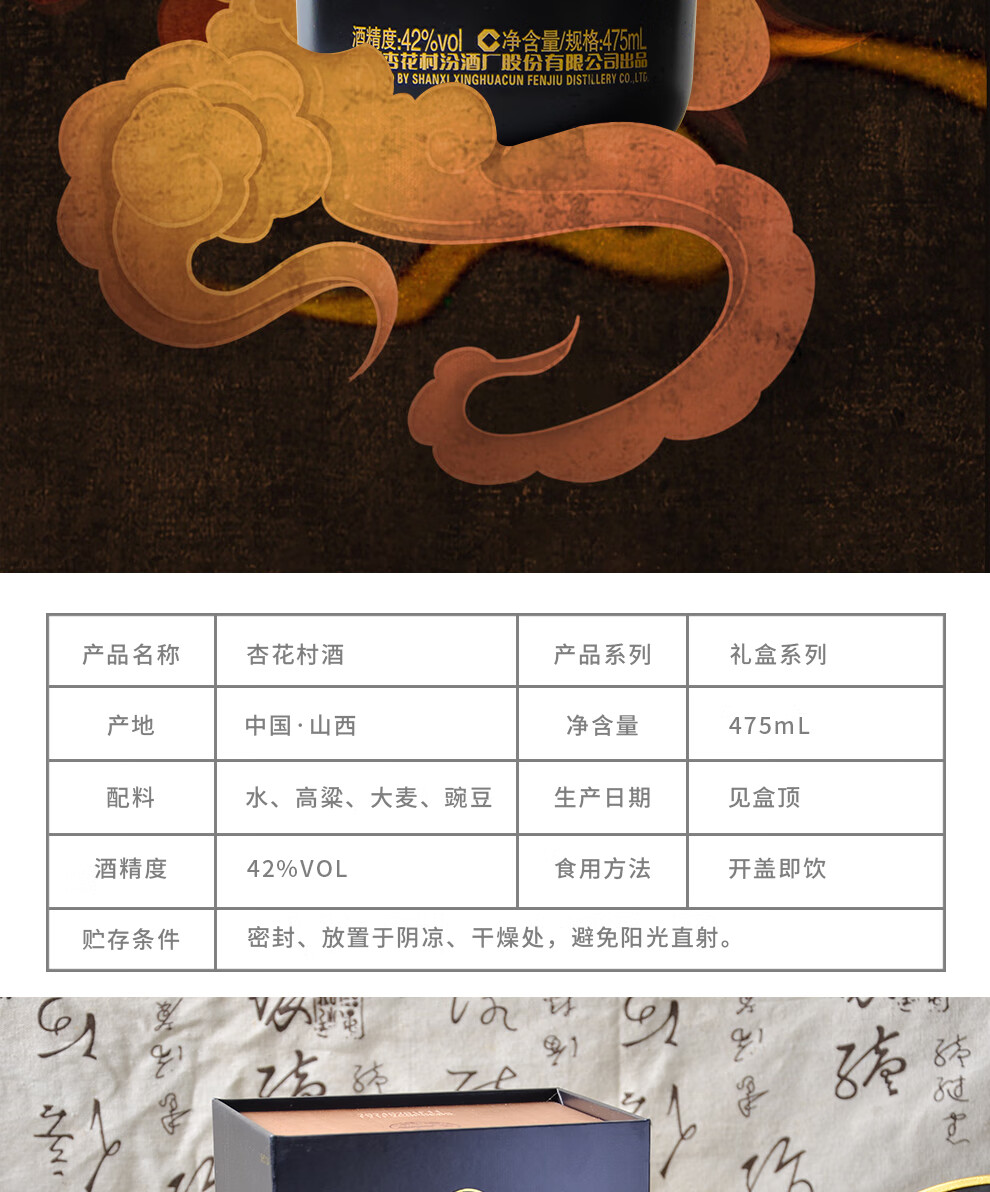 酒精度:42%vol 净含量/规格:475mL
杏花村汾酒厂股份有限公司出品
BY SHANXI XINGHUACUN FENJIU DISTILLERY CO.,LTD.
产品名称 杏花村酒 产品系列 礼盒系列
产地 中国·山西 净含量 475mL
配料 水、高粱、大麦、豌豆 生产日期 见盒顶
酒精度 42%VOL 食用方法 开盖即饮
贮存条件 密封、放置于阴凉、干燥处，避免阳光直射。